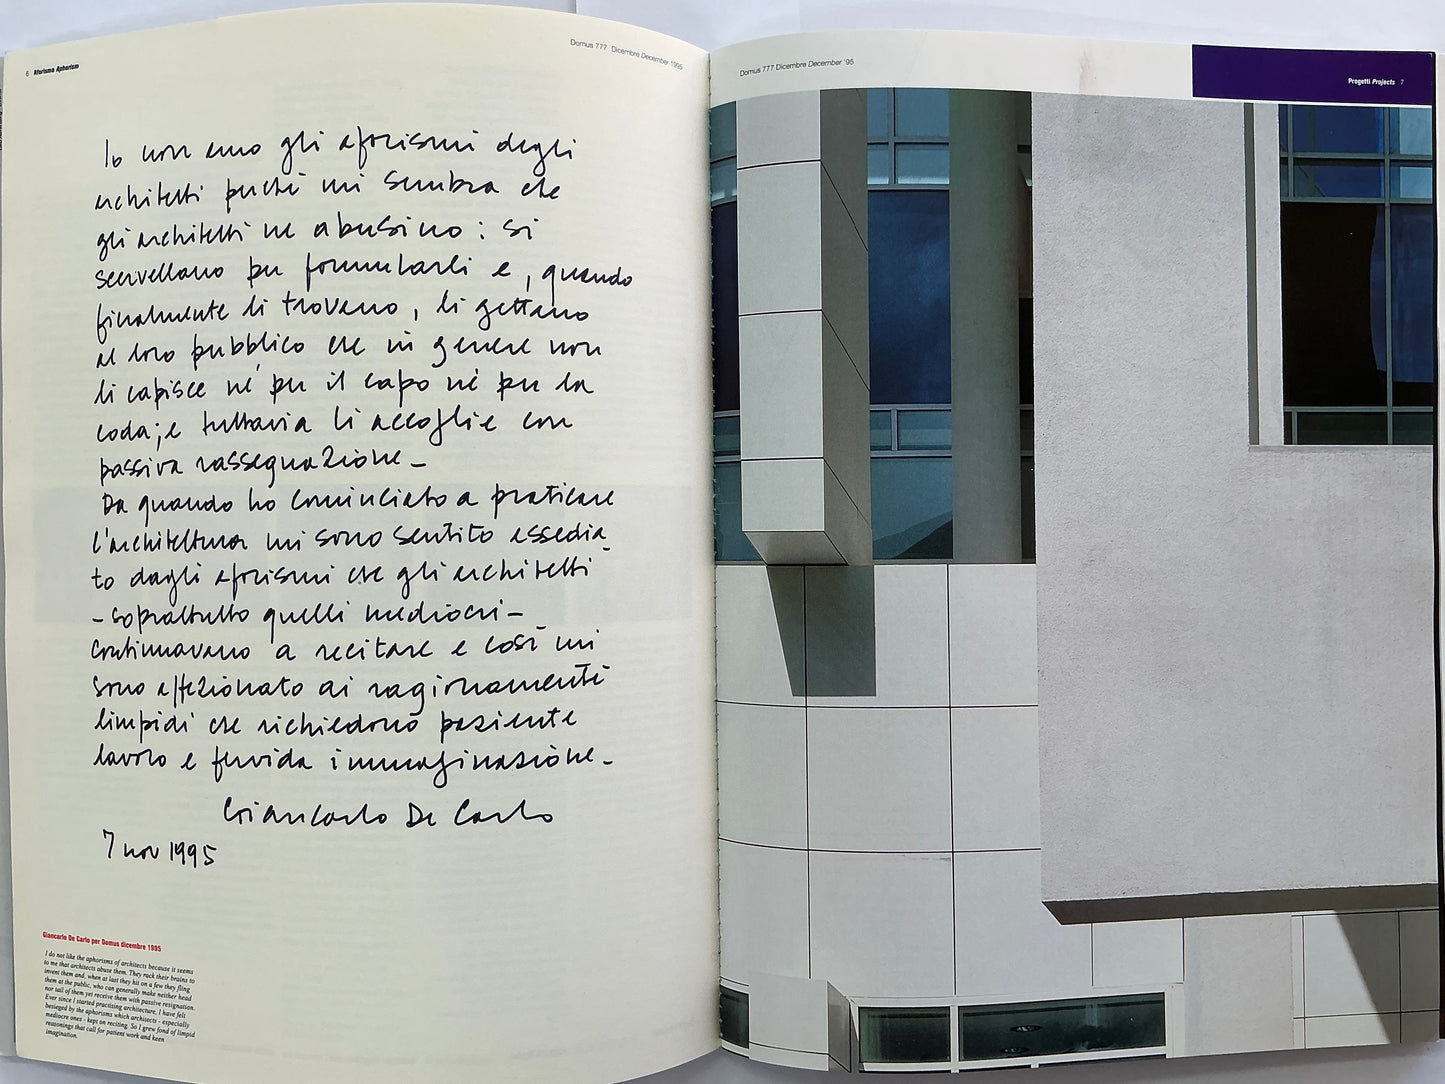 6 Aforisma Aphorism
Domus 777 Dicembre December 1995
Io non amo gli aforismi degli
architetti perché mi sembra che
gli architetti ne abusino: si
scervellano per formularli e, quando
finalmente li trovano, li gettano
al loro pubblico che in genere non
li capisce né per il capo né per la
coda; e tuttavia li accoglie con
passiva rassegnazione_
Da quando ho cominciato a praticare
l'architettura mi sono sentito assedia
to dagli aforismi che gli architetti
-soprattutto quelli mediocri-
continuavano a recitare e così mi
sono affezionato ai ragionamenti
limpidi che richiedono paziente
lavoro e fervida immaginazione_
Giancarlo De Carlo
7 nov 1995
Giancarlo De Carlo per Domus dicembre 1995
I do not like the aphorisms of architects because it seems
to me that architects abuse them. They rack their brains to
invent them and, when at last they hit on a few they fling
them at the public, who can generally make neither head
nor tail of them yet receive them with passive resignation.
Ever since I started practising architecture, I have felt
besieged by the aphorisms which architects - especially
mediocre ones - kept on reciting. So I grew fond of limpid
reasonings that call for patient work and keen
imagination.
Domus 777 Dicembre December '95
Progetti Projects 7